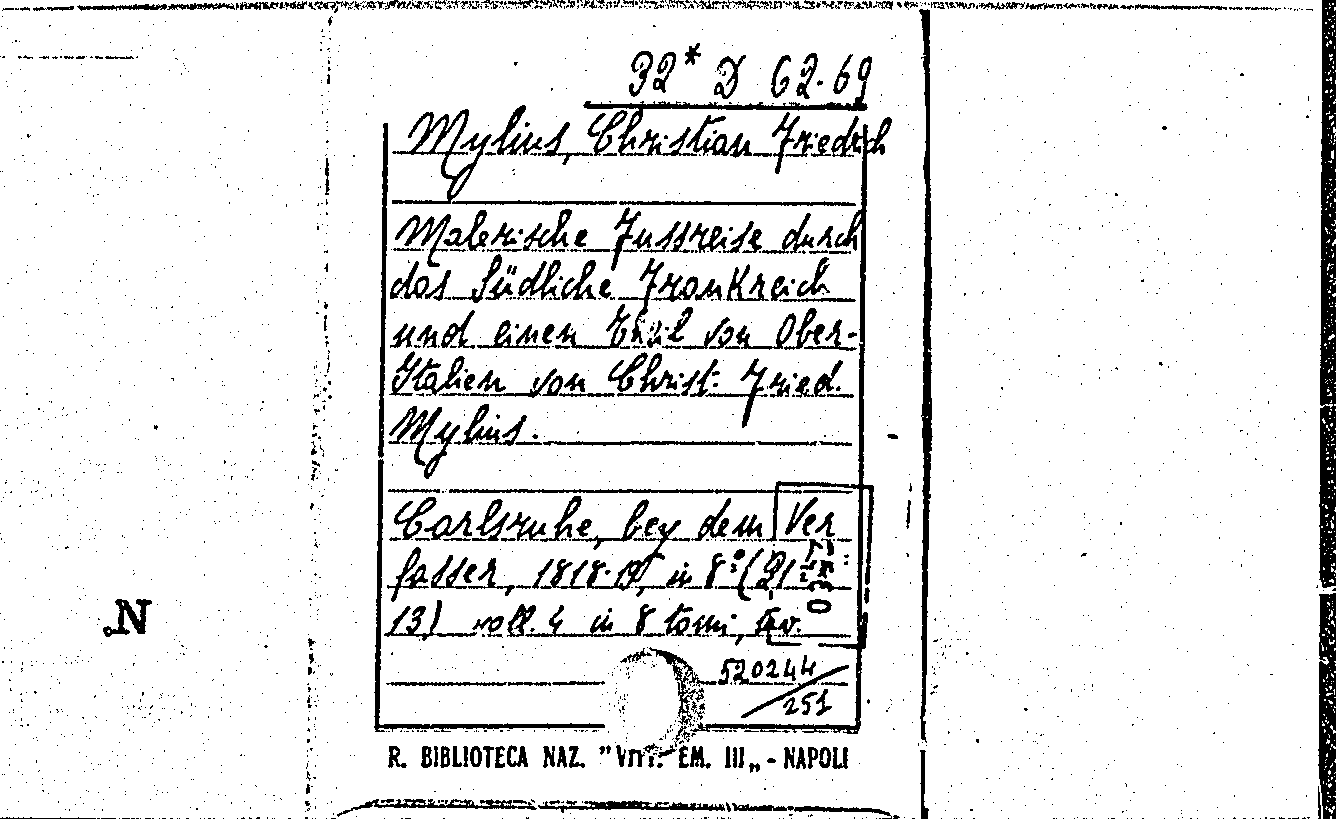 32* D 62-69
Mylius, Christian Friedrich
Malerische Fussreise durch
das südliche Frankreich
und einen Theil von Ober-
Italien von Christ. Fried.
Mylius.
Carlsruhe, bey dem Ver
fasser, 1818-19, in 8° (21
13) voll. 4 in 8 tomi, tav.
520244
251
R. BIBLIOTECA NAZ. "VITT. EM. III„ - NAPOLI
N.